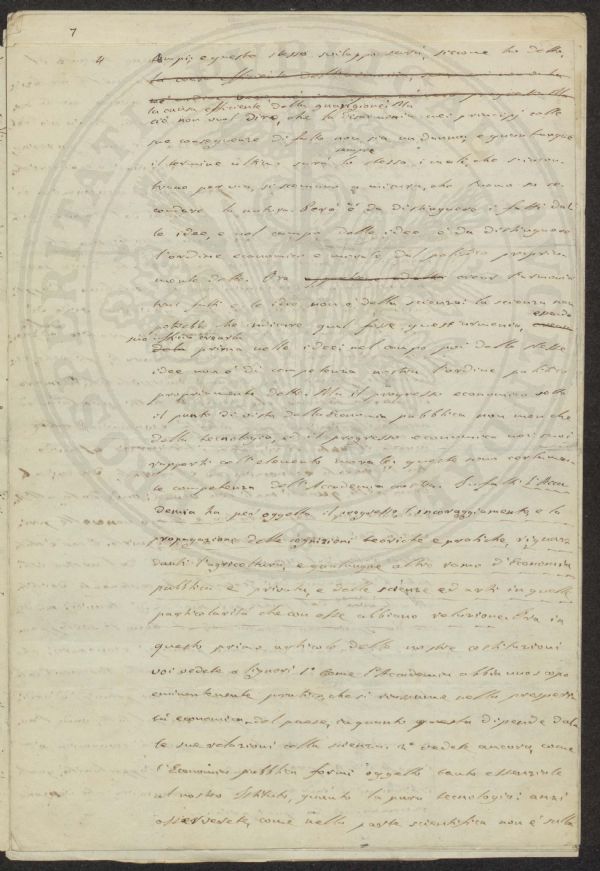 7
4
tempi; e questo stesso sviluppo sarà, siccome ho detto,
la causa efficiente della guarigione. Ma
ciò non vuol dire, che la disarmonia nei principj colle
sue conseguenze di fatto non sia un danno; e quantunque
sempre
il termine ultimo sarà lo stesso, i mali, che
per via, si scemano a misura, che l'uomo sa se
condare la natura. Però è da distinguere i fatti dal
le idee, e nel campo delle idee è da distinguere
l'ordine economico e morale dal politico propria
mente detto. Ora creare l'armonia
trai fatti e le idee, non è della scienza: la scienza non
potrebbe che indicare qual fosse quest'armonia, essendo
suo ufficio crearla
prima nelle idee: nel campo poi delle stesse
idee non è di competenza nostra l'ordine politico
propriamente detto. Ma il progresso economico sotto
il punto di vista dell'economia pubblica non men che
della tecnologia, ed il progresso economico nei suoi
rapporti coll'elemento morale: questo sono certamen
te competenza dell'Accademia nostra. Difatti l'Acca
demia ha per oggetto il progresso, l'incoraggiamento, e la
propagazione delle cognizioni teoriche e pratiche, riguar
danti l'agricoltura, e qualunque altro ramo d'Economia
pubblica e privata, e delle scienze ed arti in quelle
particolarità che con esse abbiano relazione. Ora in
questo primo articolo delle nostre costituzioni
voi vedete o Signori 1º come l'Accademia abbia uno scopo
eminentemente pratico, che si riassume nella prosperi
tà economica del paese, in quanto questa dipende dal
le sue relazioni colla scienza. 2º vedete ancora, come
l'Economia pubblica formi oggetto tanto essenziale
al nostro Istituto, quanto la pura tecnologia: anzi
osserverete, come nella parte scientifica non è sulla